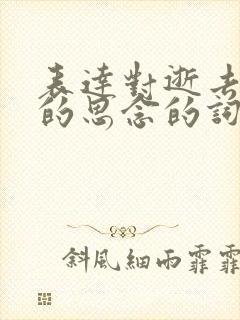 表達對逝去
的思念的詞
斜風細雨霏霏